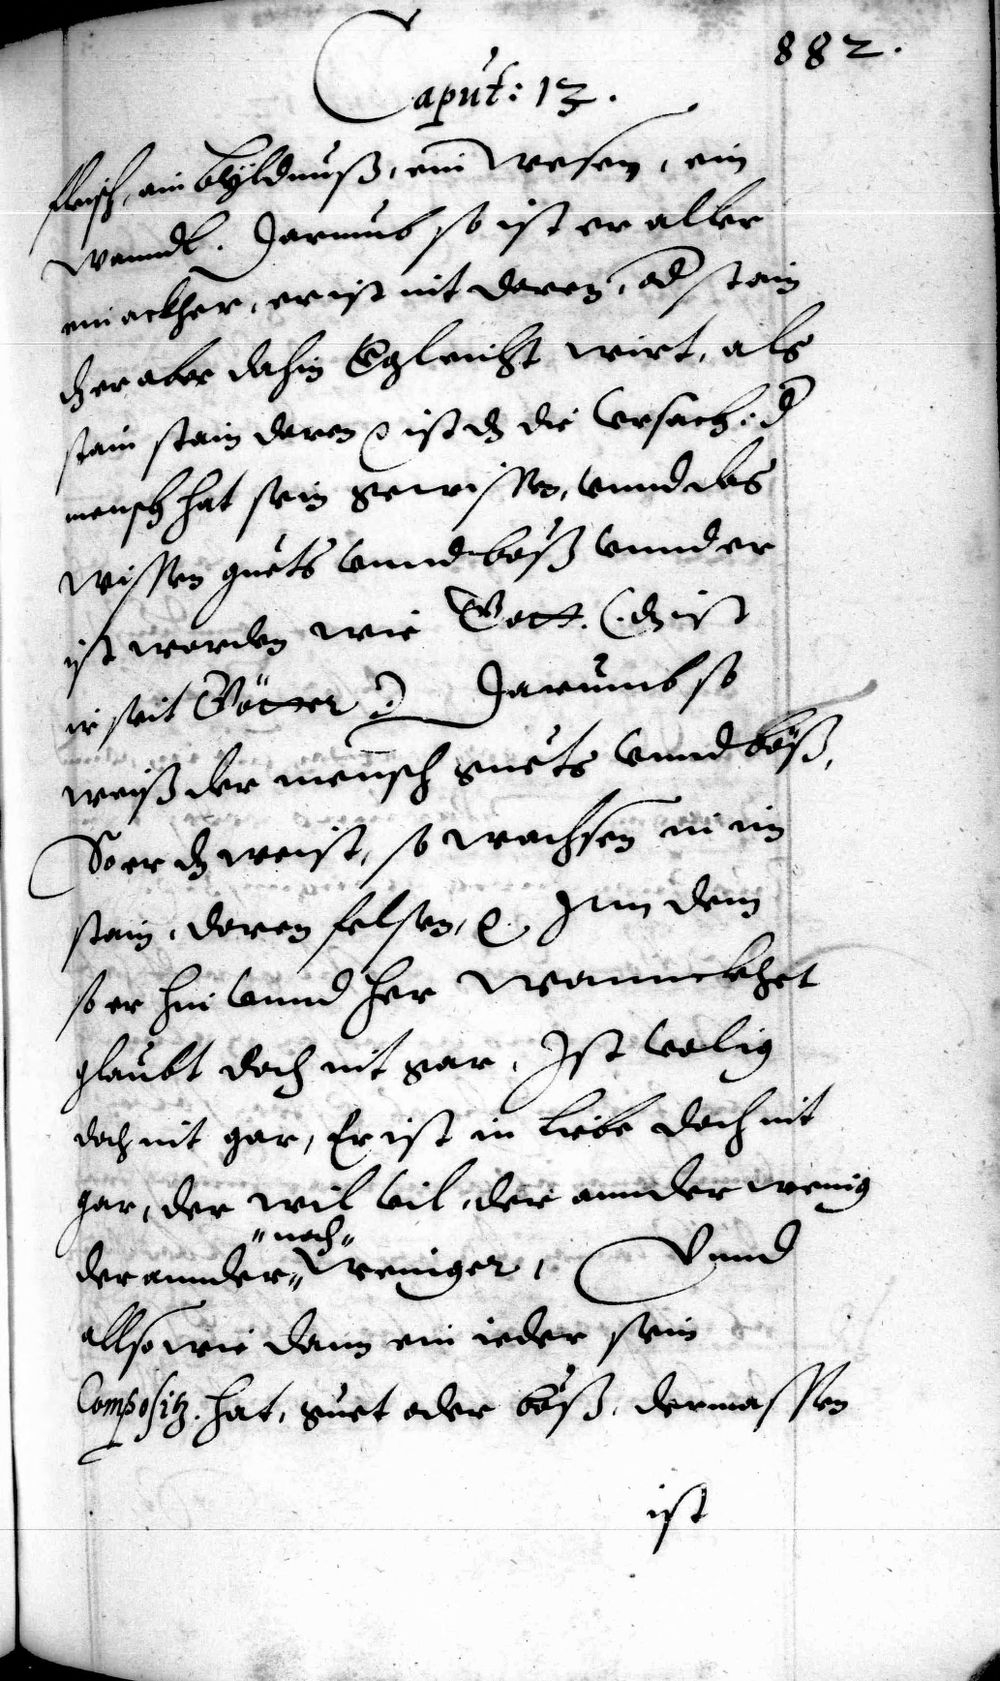 882.
Caput: 13.
fleisch, ain byldnuß, ein wesen, ein
wanndl. Darumb so ist er aller
ein ackher, er ist nit doren, od stain
dz er aber dahin vergleicht wirt, als
stain doren ist dz die vrsach: d
mensch hat sein gewissen, vnnd das
wissen guets vnnd böß vnnd er
ist worden wie Gott. (: dz ist
ir seit Götter :) Darumb so
weiß der mensch guets vnnd böß,
So er dz weist, so wachsen in im
stain, doren felsen, Inn dem
so er hin vnnd her wannckhet
glaubt doch nit gar, Ist völig
doch nit gar, Er ist in liebe doch nit
gar, der wil vil, der annder wenig
der annder noch weniger, Vnnd
allso wie dann ein ieder sein
Compositz. hat, guet oder böß, dermassen
ist